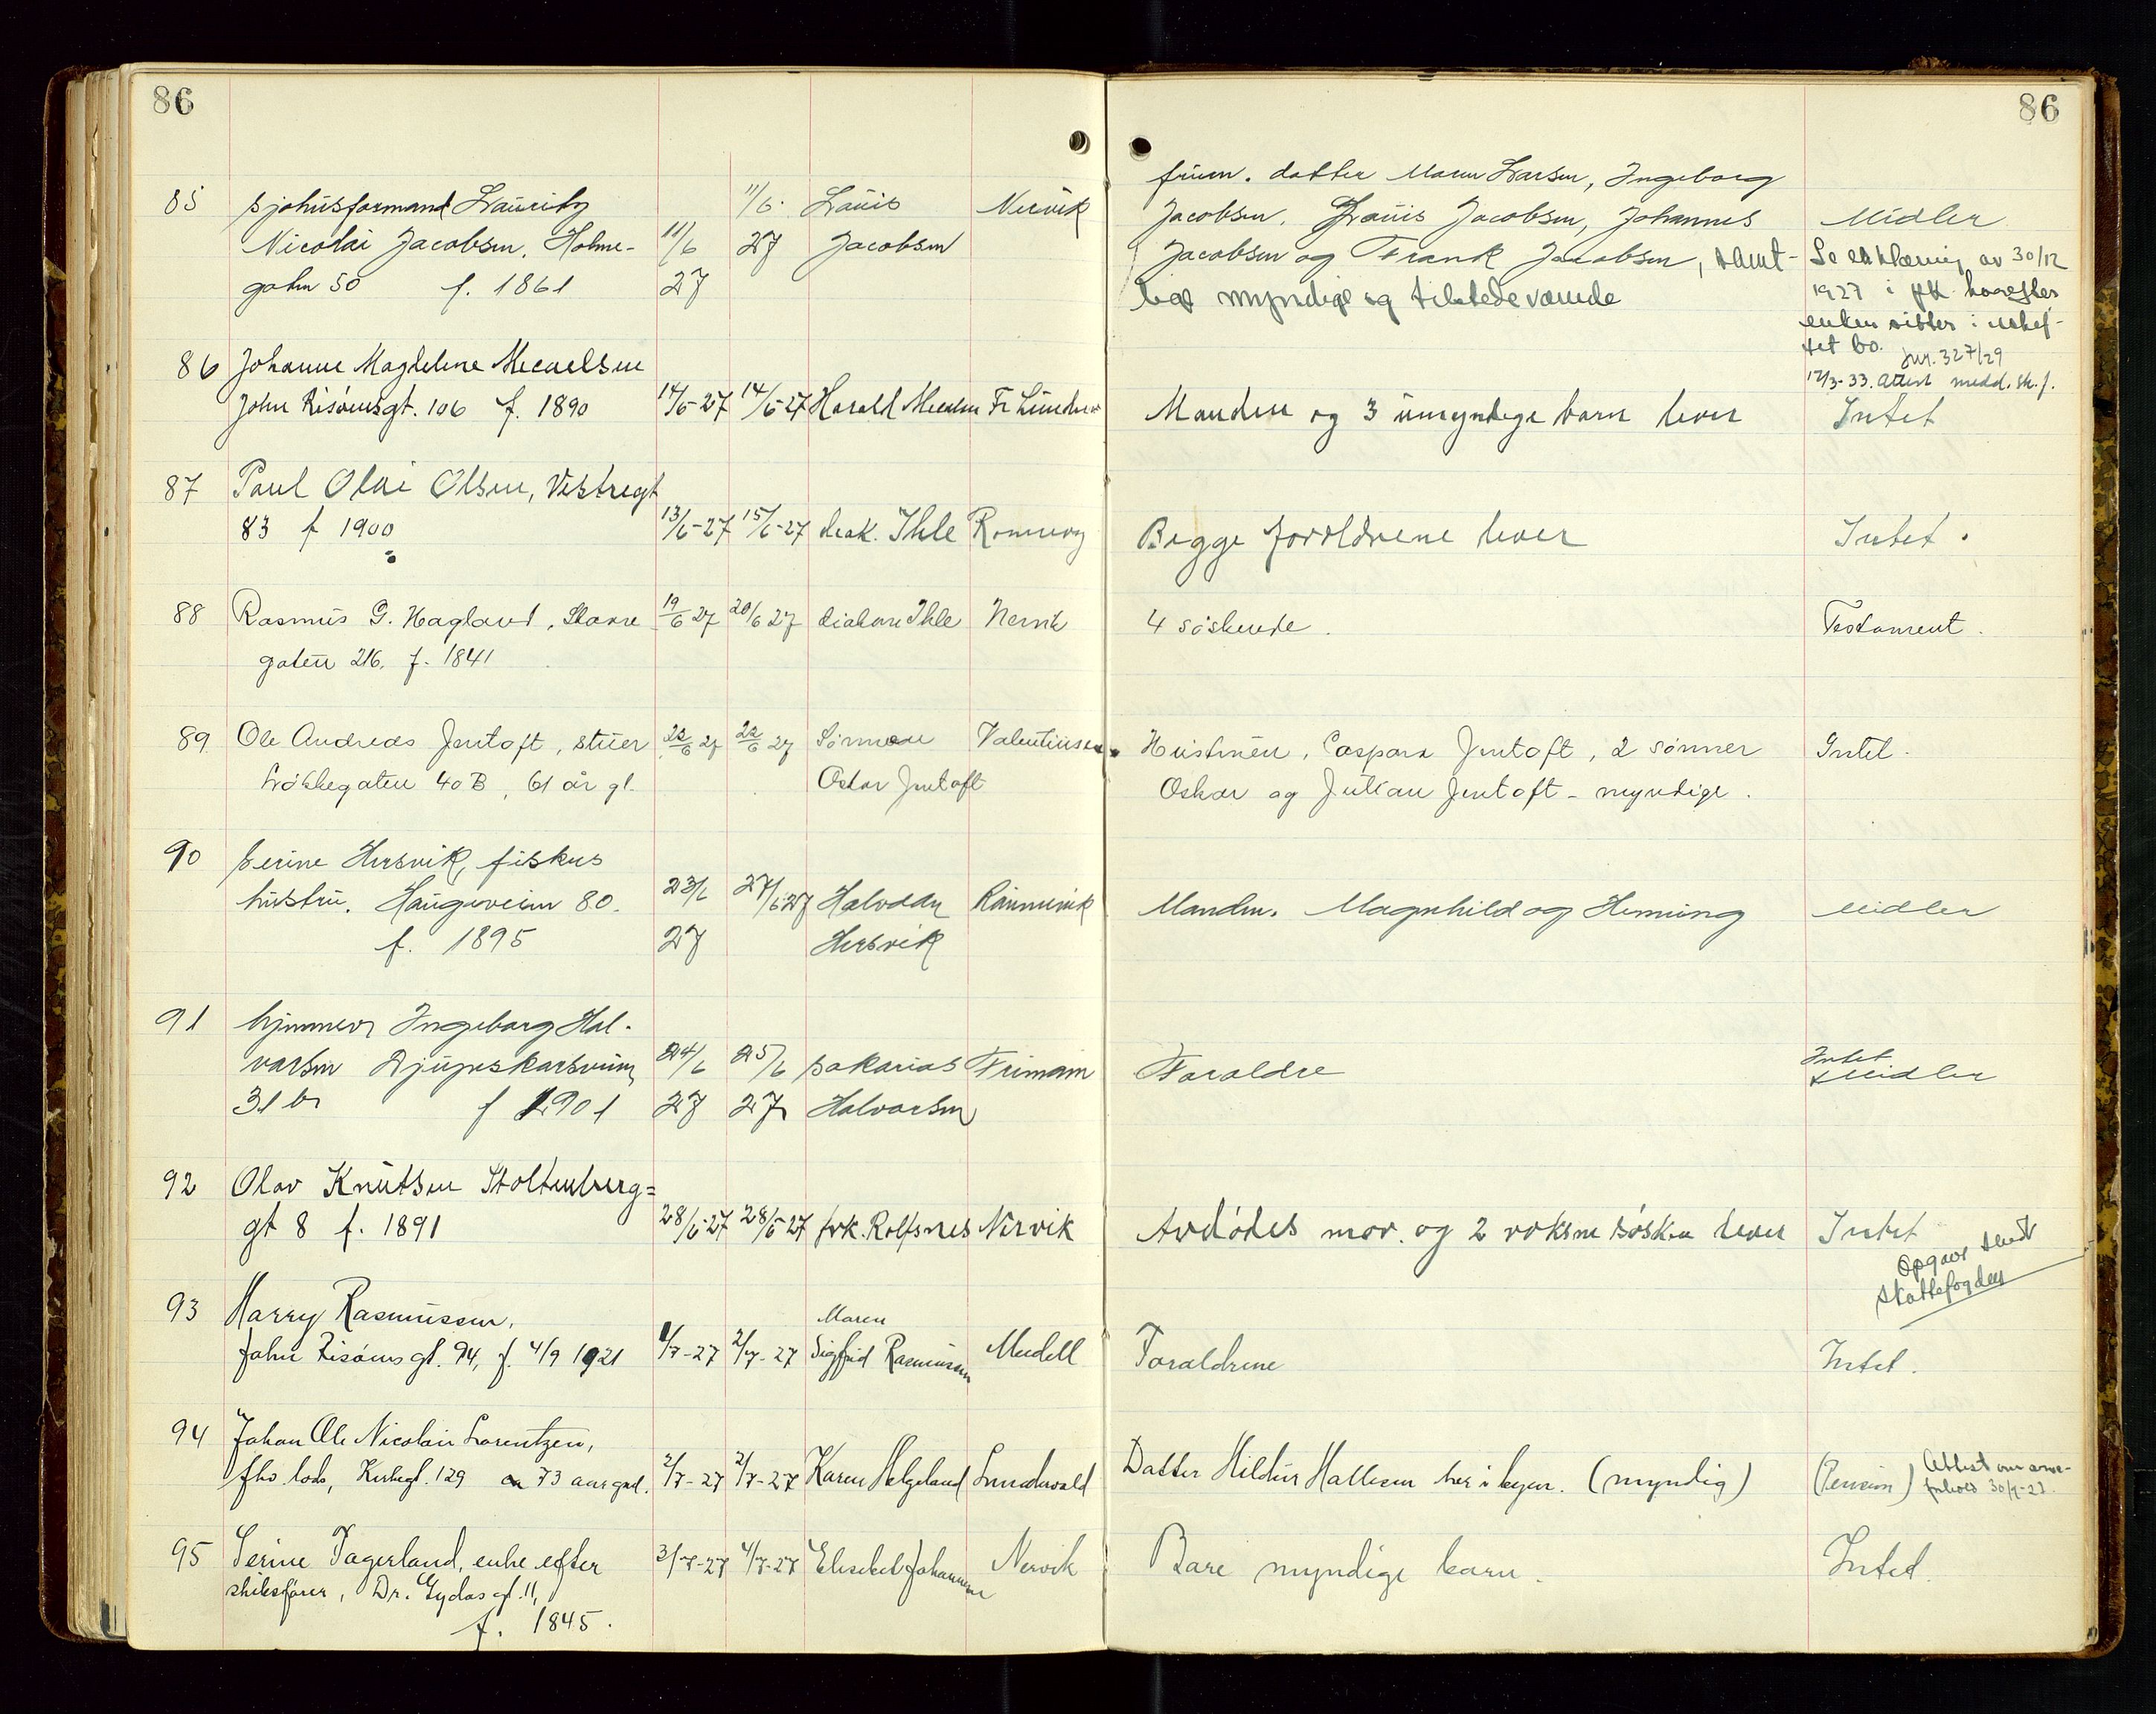 86
86
85 Sjøhusformand Lauritz 11/6 Lauis Nervik
Nicolai Jacobsen, Holme- 11/6 27 Jacobsen
gaten 50 f. 1861 27
fruen. datter Maren Larsen, Ingeborg
Jacobsen, Lauis Jacobsen, Johannes Midler
Jacobsen og Frank Jacobsen, samt- Se erklæring av 30/12
lige myndige og tilstedeværende 1927 i pk hvorefter
enken sitter i uskif-
tet bo. Jnr. 327/29
17/3-33. Attest medd. sk.f.
86 Johanne Magdelene Mecaelsen
John Risøensgt. 106 f. 1890 14/6-27 14/6-27 Harald Mecalsen Fr Lunde Manden og 3 umyndige barn lever Intet
87 Paul Olai Olsen, Vestregt
83 f 1900 13/6-27 15/6-27 diak. Ihle Rønnevig Begge forældrene lever Intet.
88 Rasmus G. Hagland, Skaare 19/6 27 20/6 27 diakon Ihle Nervik 4 søskende. Testament.
gaten 216. f. 1841
89 Ole Andreas Jentoft, stuer 22/6 27 22/6 27 Sønnen Valentinsen Hustruen, Caspara Jentoft, 2 sønner Intet.
Løkkegaten 40B, 61 år gl. Oskar Jentoft Oskar og Julian Jentoft - myndige.
90 Serine Hersvik, fiskers
hustru. Haugeveien 80. 23/6 27/6 27 Halvdan Rønnevik Manden. Magnhild og Henning Midler
f. 1895 27 Hersvik
91 Hjemmev Ingeborg Hal-
varsen Djupeskarsveien 24/6 25/6 Sakarias Frimann Foraldre Intet Midler
31 b f 1901 27 27 Halvarsen
92 Olav Knutsen Stoltenberg=
gt 8 f. 1891 28/6-27 28/6-27 frk. Rolfsnes Nervik Avdødes mor og 2 voksne søsken lever Intet
Opgave sendt
skattefogden
93 Harry Rasmussen, Maren
John Risøens gt. 94, f. 4/9 1921 1/7-27 2/7-27 Sigfrid Rasmussen Meidell Foraldrene Intet.
94 Johan Ole Nicolai Lorentzen,
fhv. lods, Kirkegt. 129 ca 73 aar gml. 2/7-27 2/7-27 Karen Helgeland Lundevald Datter Hildur Hallesen her i byen. (myndig) (Pension) Attest om arve-
forhold 30/9-27.
95 Serine Fagerland, enke efter 3/7-27 4/7-27 Elisebet Johannesen Nervik Bare myndige barn. Intet.
skibsfører, Dr. Eydes gt. 11,
f. 1845.